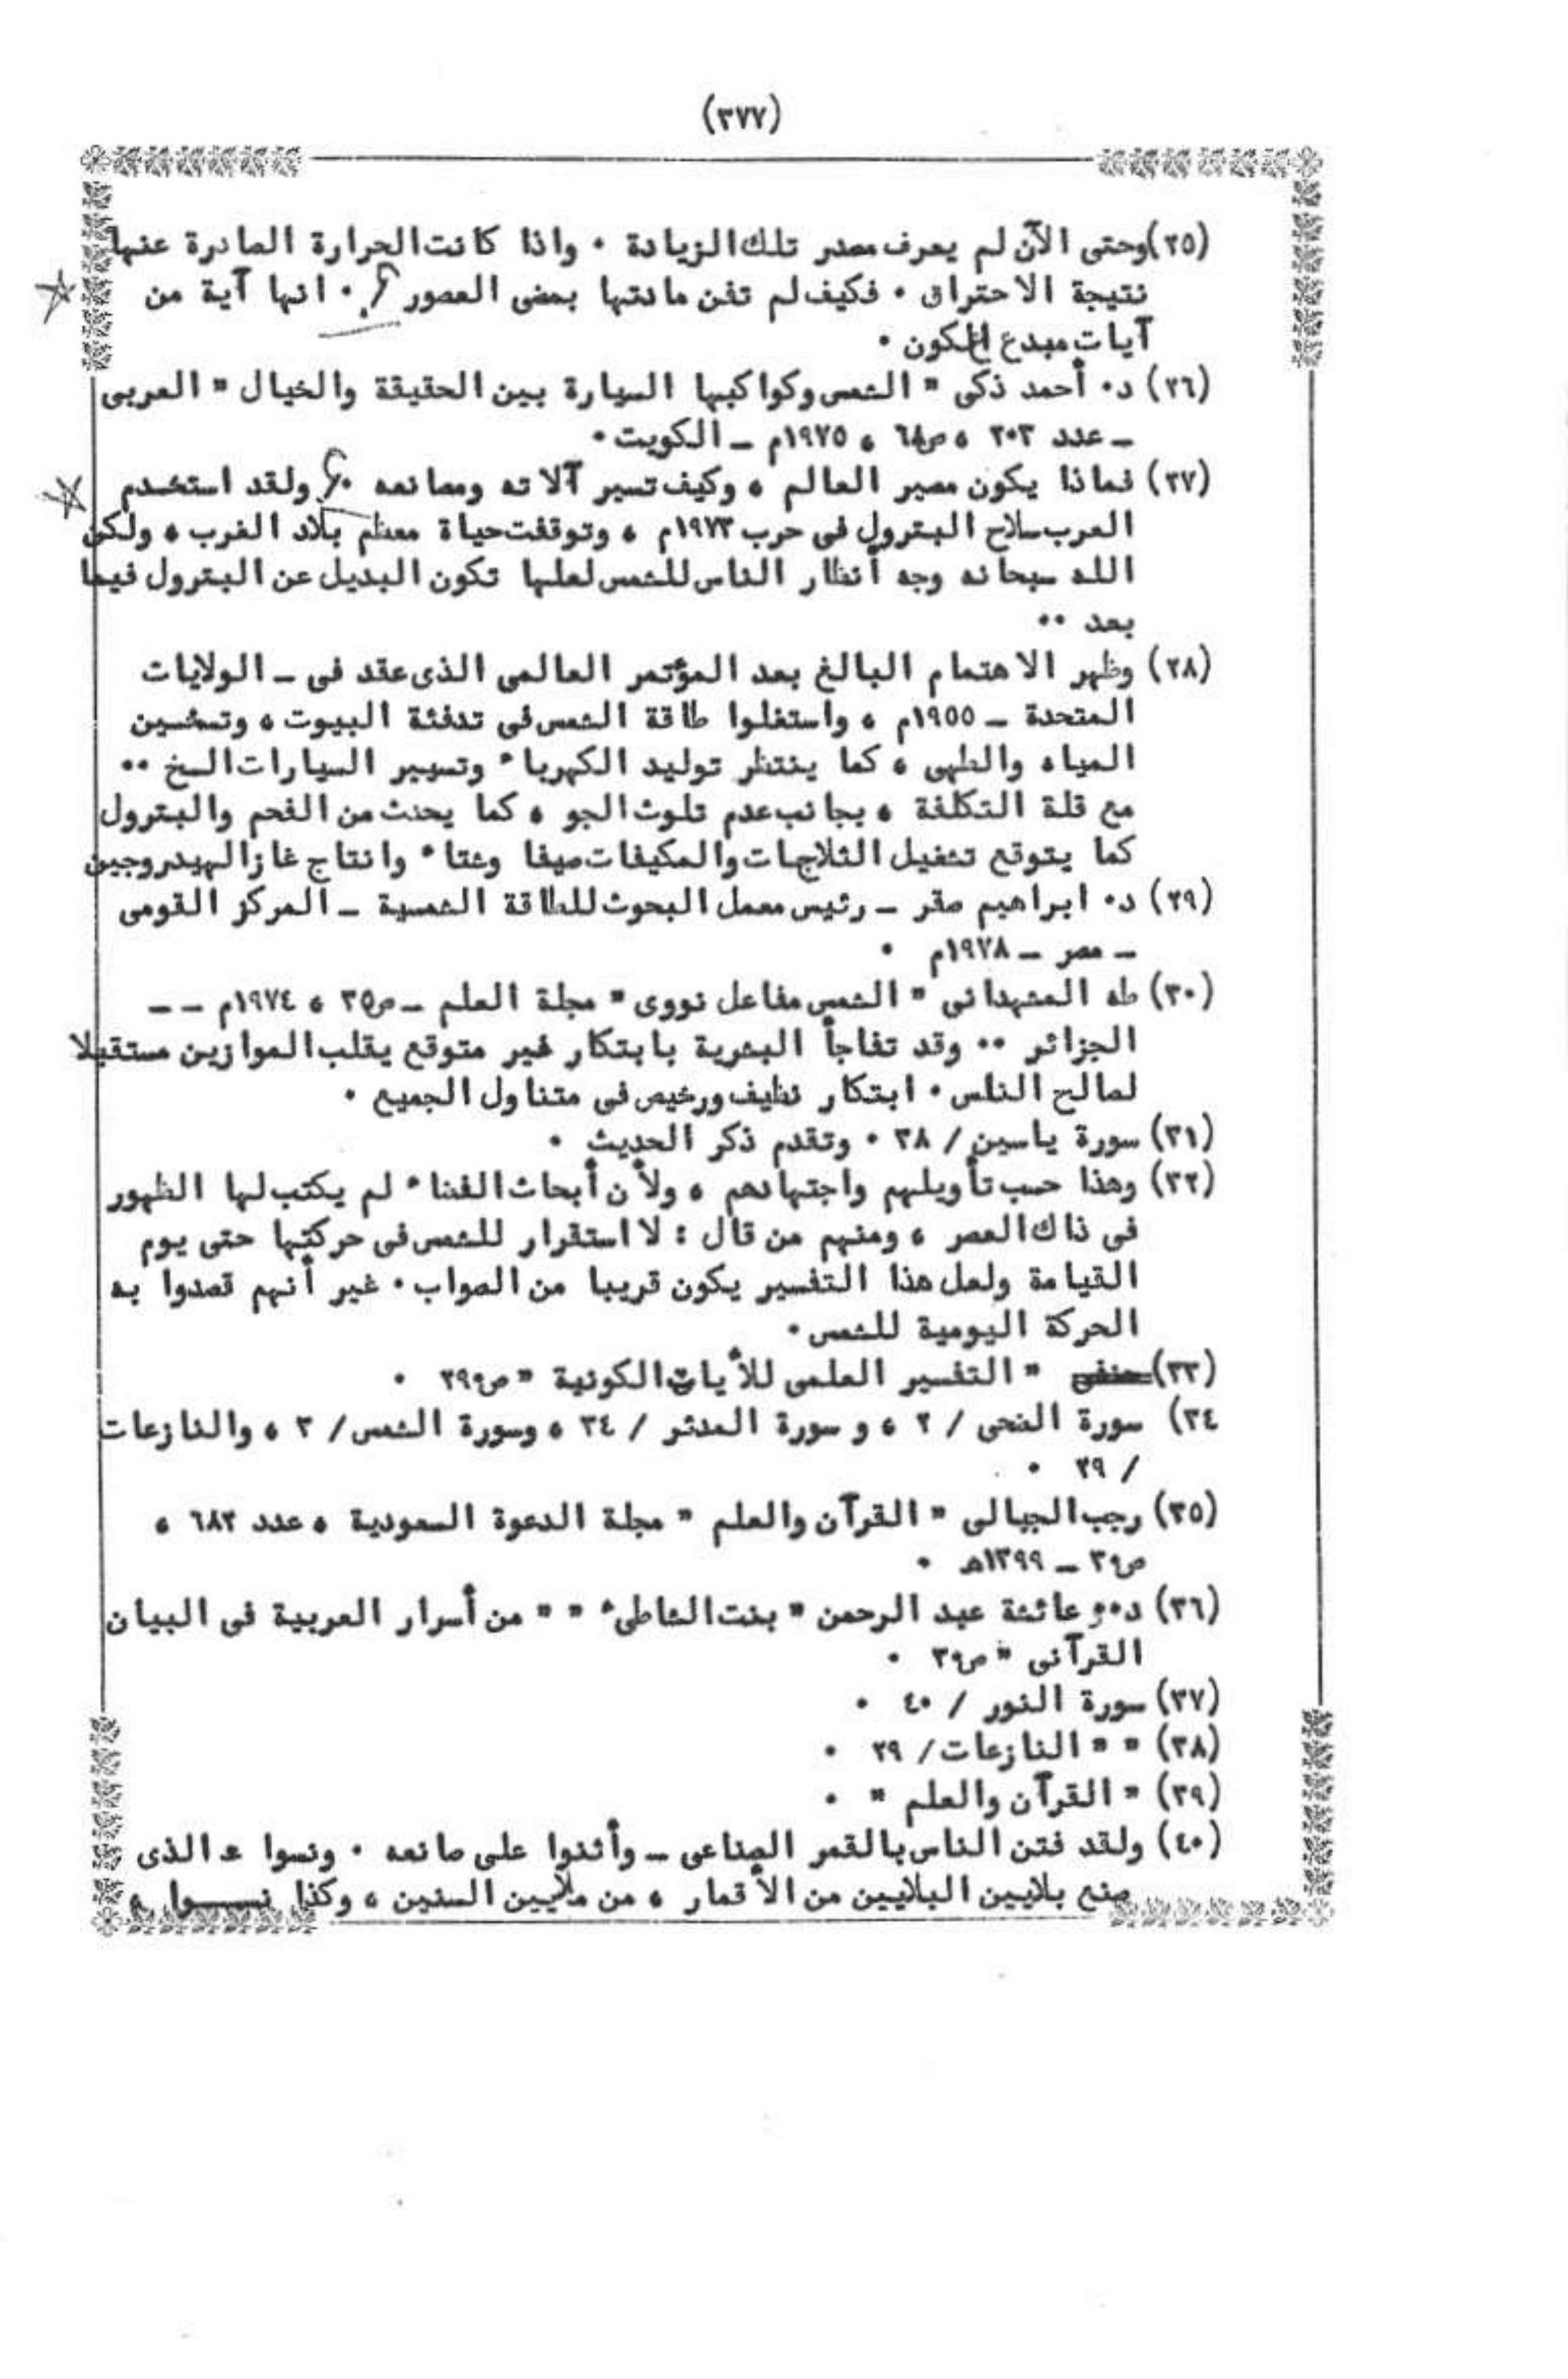 (٣٧٧)
(٢٥) وحتى الآن لم يعرف مصدر تلك الزيادة ٠ واذا كانت الحرارة الصادرة عنها
نتيجة الاحتراق ٠ فكيف لم تفن مادتها بمضى العصور ؟ ٠ انها آية من
آيات مبدع الكون ٠
(٢٦) د٠ أحمد ذكى " الشمس وكواكبها السيارة بين الحقيقة والخيال " العربى
ـ عدد ٢٠٣ ، ص٦٤ ، ١٩٧٥م ـ الكويت ٠
(٢٧) فماذا يكون مصير العالم ، وكيف تسير آلاته ومصانعه ؟ ولقد استخدم
العرب سلاح البترول فى حرب ١٩٧٣م ، وتوقفت حياة معظم بلاد الغرب ، ولكن
الله سبحانه وجه أنظار الناس للشمس لعلها تكون البديل عن البترول فيما
بعد ٠٠
(٢٨) وظهر الاهتمام البالغ بعد المؤتمر العالمى الذى عقد فى ـ الولايات
المتحدة ـ ١٩٥٥م ، واستغلوا طاقة الشمس فى تدفئة البيوت ، وتسخين
المياه والطهى ، كما ينتظر توليد الكهرباء وتسيير السيارات الخ ٠٠
مع قلة التكلفة ، بجانب عدم تلوث الجو ، كما يحدث من الفحم والبترول
كما يتوقع تشغيل الثلاجات والمكيفات صيفا وشتاء وانتاج غاز الهيدروجين
(٢٩) د٠ ابراهيم صقر ـ رئيس معمل البحوث للطاقة الشمسية ـ المركز القومى
ـ مصر ـ ١٩٧٨م ٠
(٣٠) طه المشهدانى " الشمس مفاعل نووى " مجلة العلم ـ ص٣٥ ، ١٩٧٤م ـ ـ
الجزائر ٠٠ وقد تفاجأ البشرية بابتكار غير متوقع يقلب الموازين مستقبلا
لصالح الناس ٠ ابتكار نظيف ورخيص فى متناول الجميع ٠
(٣١) سورة ياسين / ٣٨ ٠ وتقدم ذكر الحديث ٠
(٣٢) وهذا حسب تأويلهم واجتهادهم ، ولأن أبحاث الفضاء لم يكتب لها الظهور
فى ذاك العصر ، ومنهم من قال : لا استقرار للشمس فى حركتها حتى يوم
القيامة ولعل هذا التفسير يكون قريبا من الصواب ٠ غير أنهم قصدوا به
الحركة اليومية للشمس ٠
(٣٣) حنفى " التفسير العلمى للأيات الكونية " ص٢٩٩ ٠
٣٤) سورة الضحى / ٢ ، و سورة المدثر / ٣٤ ، وسورة الشمس / ٣ ، والنازعات
/ ٢٩ ٠
(٣٥) رجب الجبالى " القرآن والعلم " مجلة الدعوة السعودية ، عدد ٦٨٢ ،
ص٣٩ ـ ١٣٩٩هـ ٠
(٣٦) د٠ عائشة عبد الرحمن " بنت الشاطىء " " من أسرار العربية فى البيان
القرآنى " ص٣٩ ٠
(٣٧) سورة النور / ٤٠ ٠
(٣٨) " " النازعات / ٢٩ ٠
(٣٩) " القرآن والعلم " ٠
(٤٠) ولقد فتن الناس بالقمر الصناعى ـ وأثنوا على صانعه ٠ ونسوا الذى
صنع بلايين البلايين من الأقمار ، من ملايين السنين ، وكذا نسوا ،